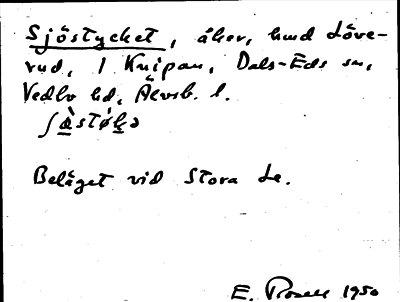 Sjöstycket, åker, hmd Löve-
rud, 1 Knipan, Dals-Eds sn,
Vedbo hd, Älvsb. l.
Beläget vid Stora Le.
E. Rosell 1950